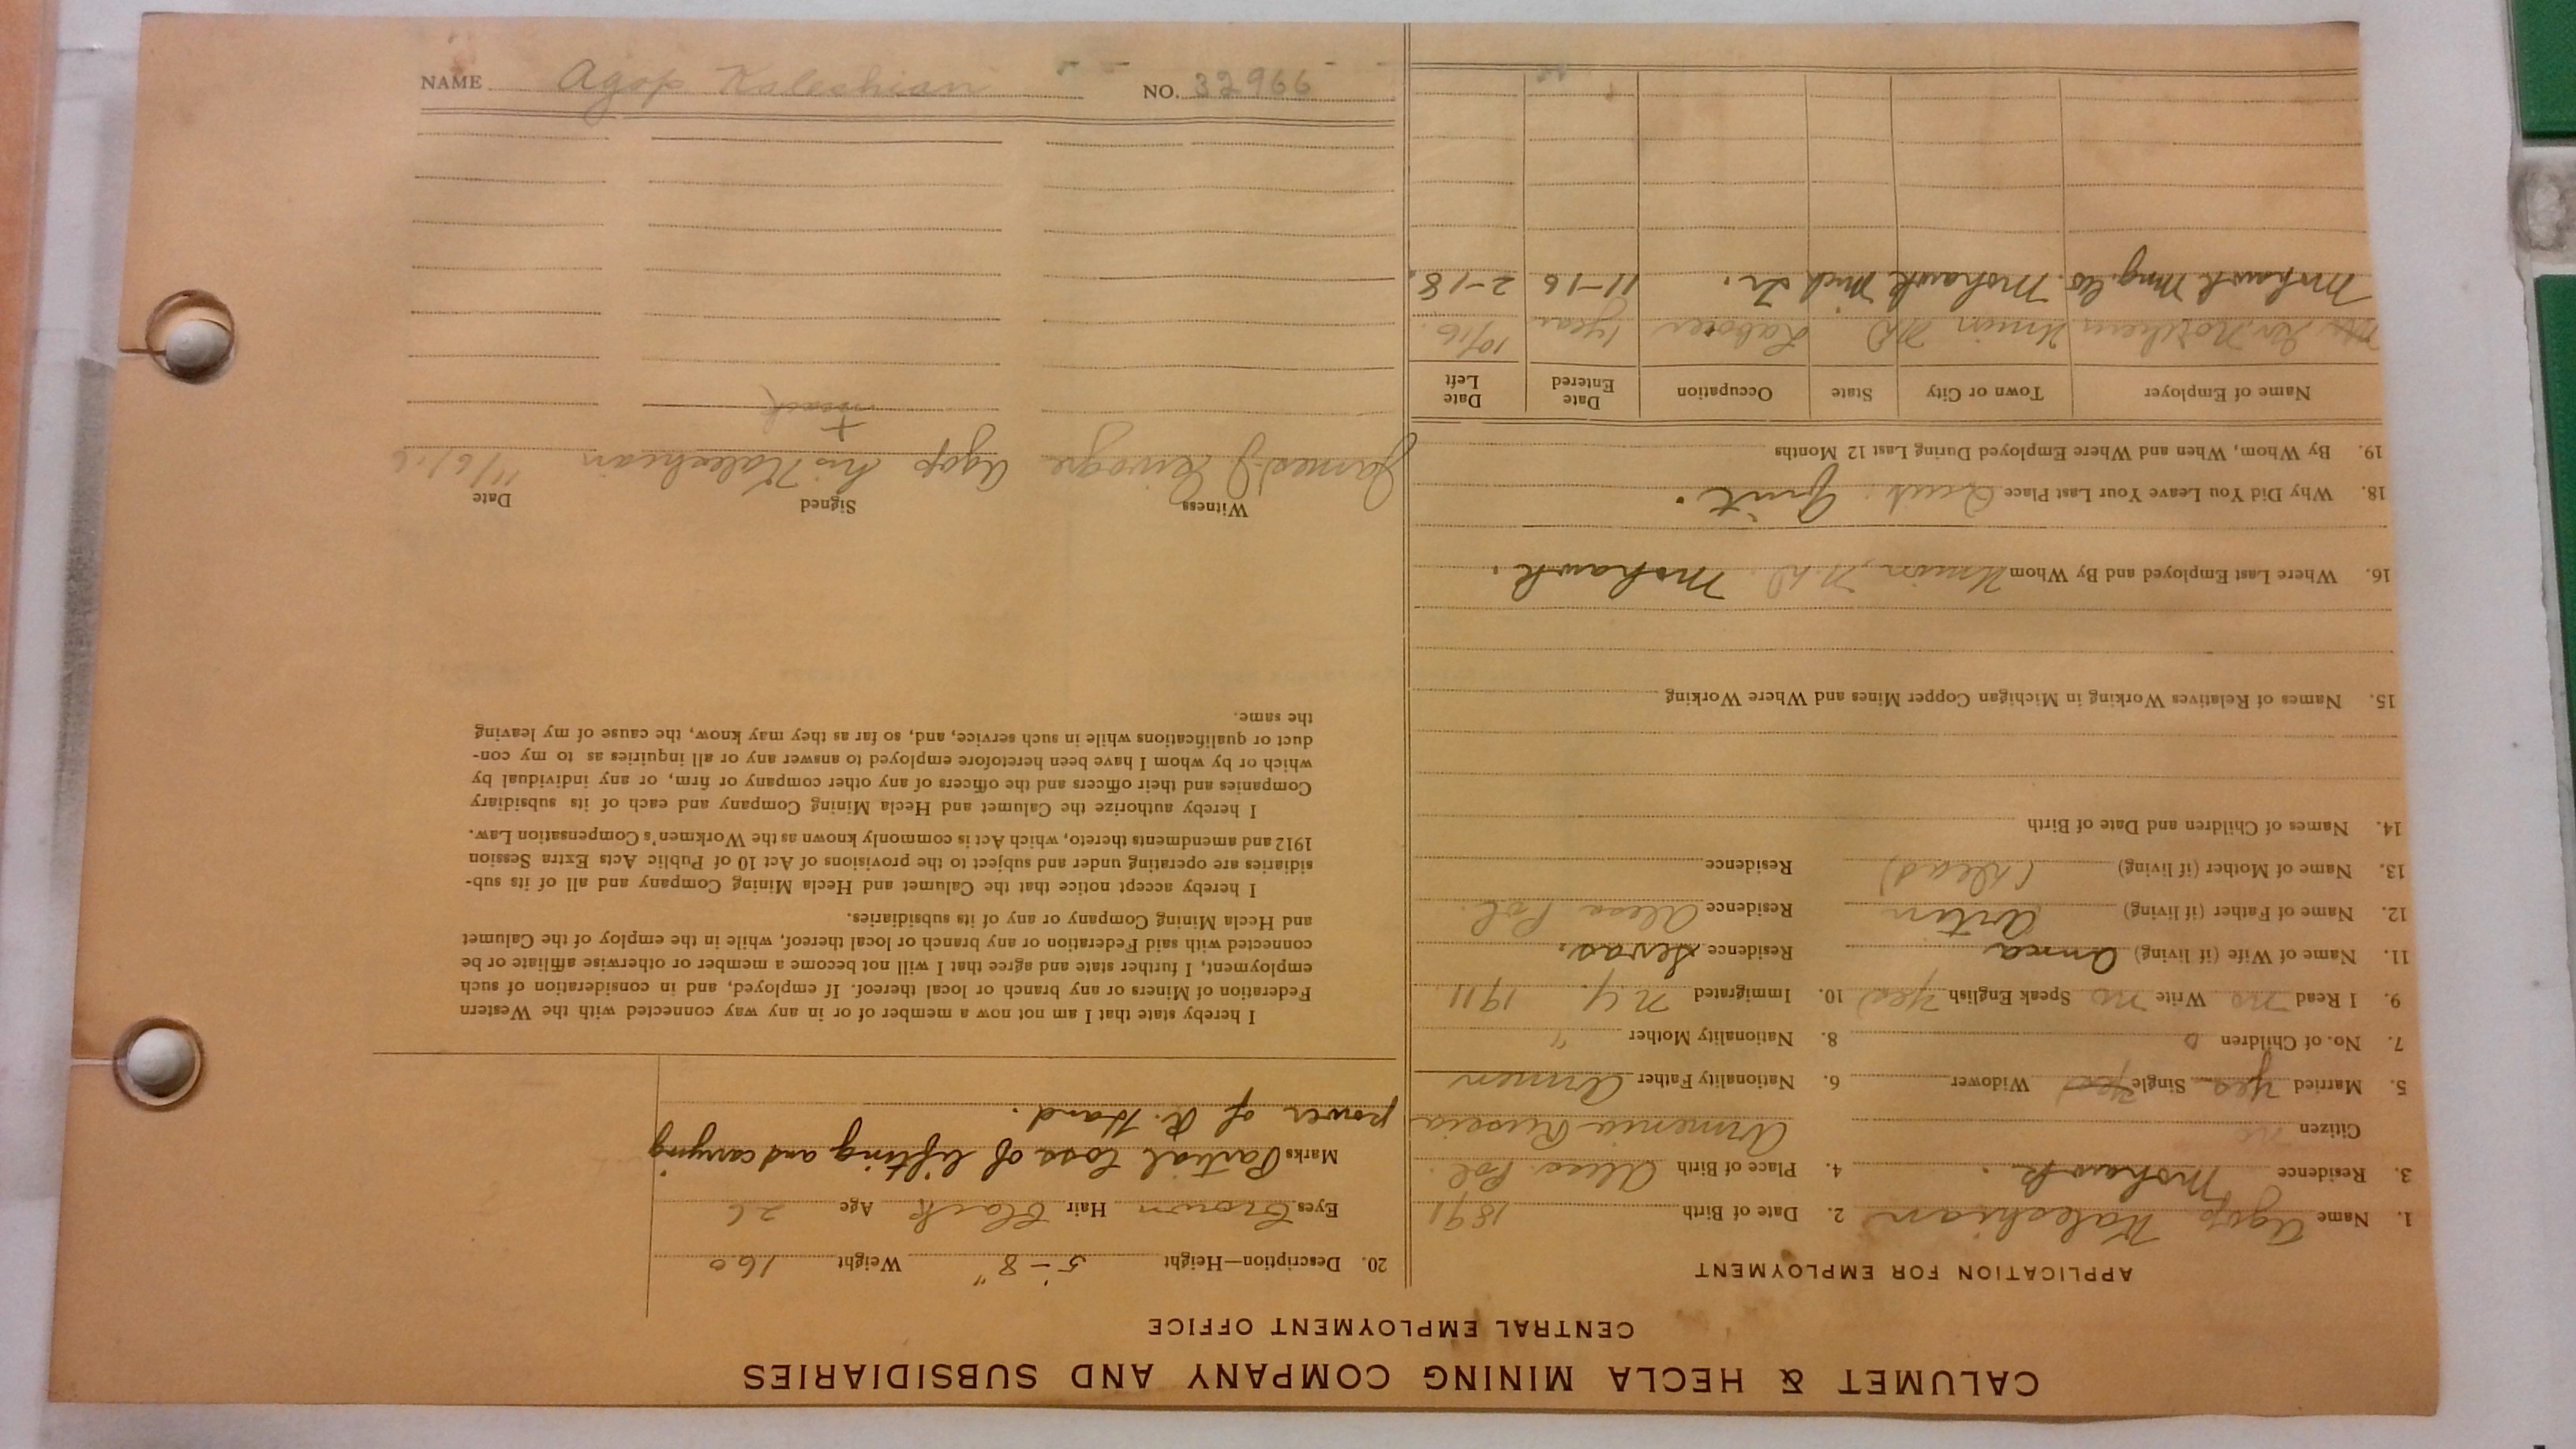 CALUMET & HECLA MINING COMPANY AND SUBSIDIARIES
CENTRAL EMPLOYMENT OFFICE
APPLICATION FOR EMPLOYMENT
1. Name Agop Kaleshian 2. Date of Birth 1891
3. Residence Mohawk. 4. Place of Birth
Citizen no Armenia Russia
5. Married Yes Single Yes Widower 6. Nationality Father Armen
7. No. of Children 0 8. Nationality Mother "
9. I Read no Write no Speak English Yes 10. Immigrated N.Y. 1911
11. Name of Wife (if living) Anna Residence Sevas.
12. Name of Father (if living) Artin Residence
13. Name of Mother (if living) (Dead) Residence
14. Names of Children and Date of Birth
15. Names of Relatives Working in Michigan Copper Mines and Where Working
16. Where Last Employed and By Whom Union N.D. Mohawk.
18. Why Did You Leave Your Last Place Quit. Quit.
19. By Whom, When and Where Employed During Last 12 Months
Name of Employer Town or City State Occupation Date Entered Date Left
Northern Union ND Laborer 1 year 10/16.
Mohawk Mng. Co. Mohawk Mich Tr. 11-16 2-18.
20. Description—Height 5'-8" Weight 160
Eyes Brown Hair Black Age 26
Marks Partial loss of lifting and carrying
power of R. Hand.
I hereby state that I am not now a member of or in any way connected with the Western
Federation of Miners or any branch or local thereof. If employed, and in consideration of such
employment, I further state and agree that I will not become a member or otherwise affiliate or be
connected with said Federation or any branch or local thereof, while in the employ of the Calumet
and Hecla Mining Company or any of its subsidiaries.
I hereby accept notice that the Calumet and Hecla Mining Company and all of its sub-
sidiaries are operating under and subject to the provisions of Act 10 of Public Acts Extra Session
1912 and amendments thereto, which Act is commonly known as the Workmen's Compensation Law.
I hereby authorize the Calumet and Hecla Mining Company and each of its subsidiary
Companies and their officers and the officers of any other company or firm, or any individual by
which or by whom I have been heretofore employed to answer any or all inquiries as to my con-
duct or qualifications while in such service, and, so far as they may know, the cause of my leaving
the same.
Witness Signed Date
James J Agop his Kaleshian 11/6/16
X
mark
NAME Agop Kaleshian NO. 32966